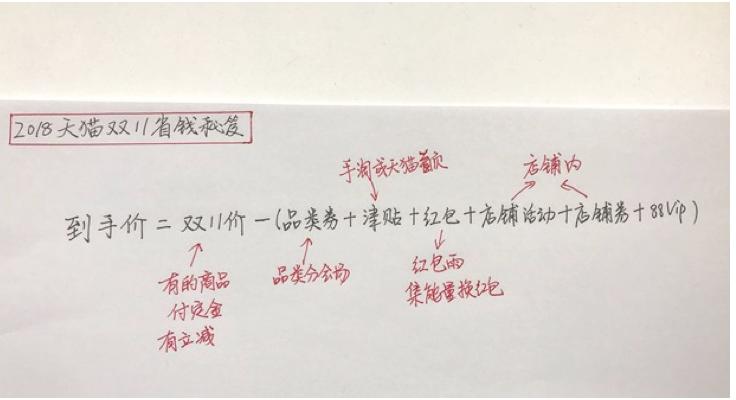 2018天猫双11省钱秘笈
手淘或天猫首页
店铺内
到手价=双11价-(品类券+津贴+红包+店铺活动+店铺券+88Vip)
有的商品
付定金
有立减
品类分会场
红包雨
集能量换红包